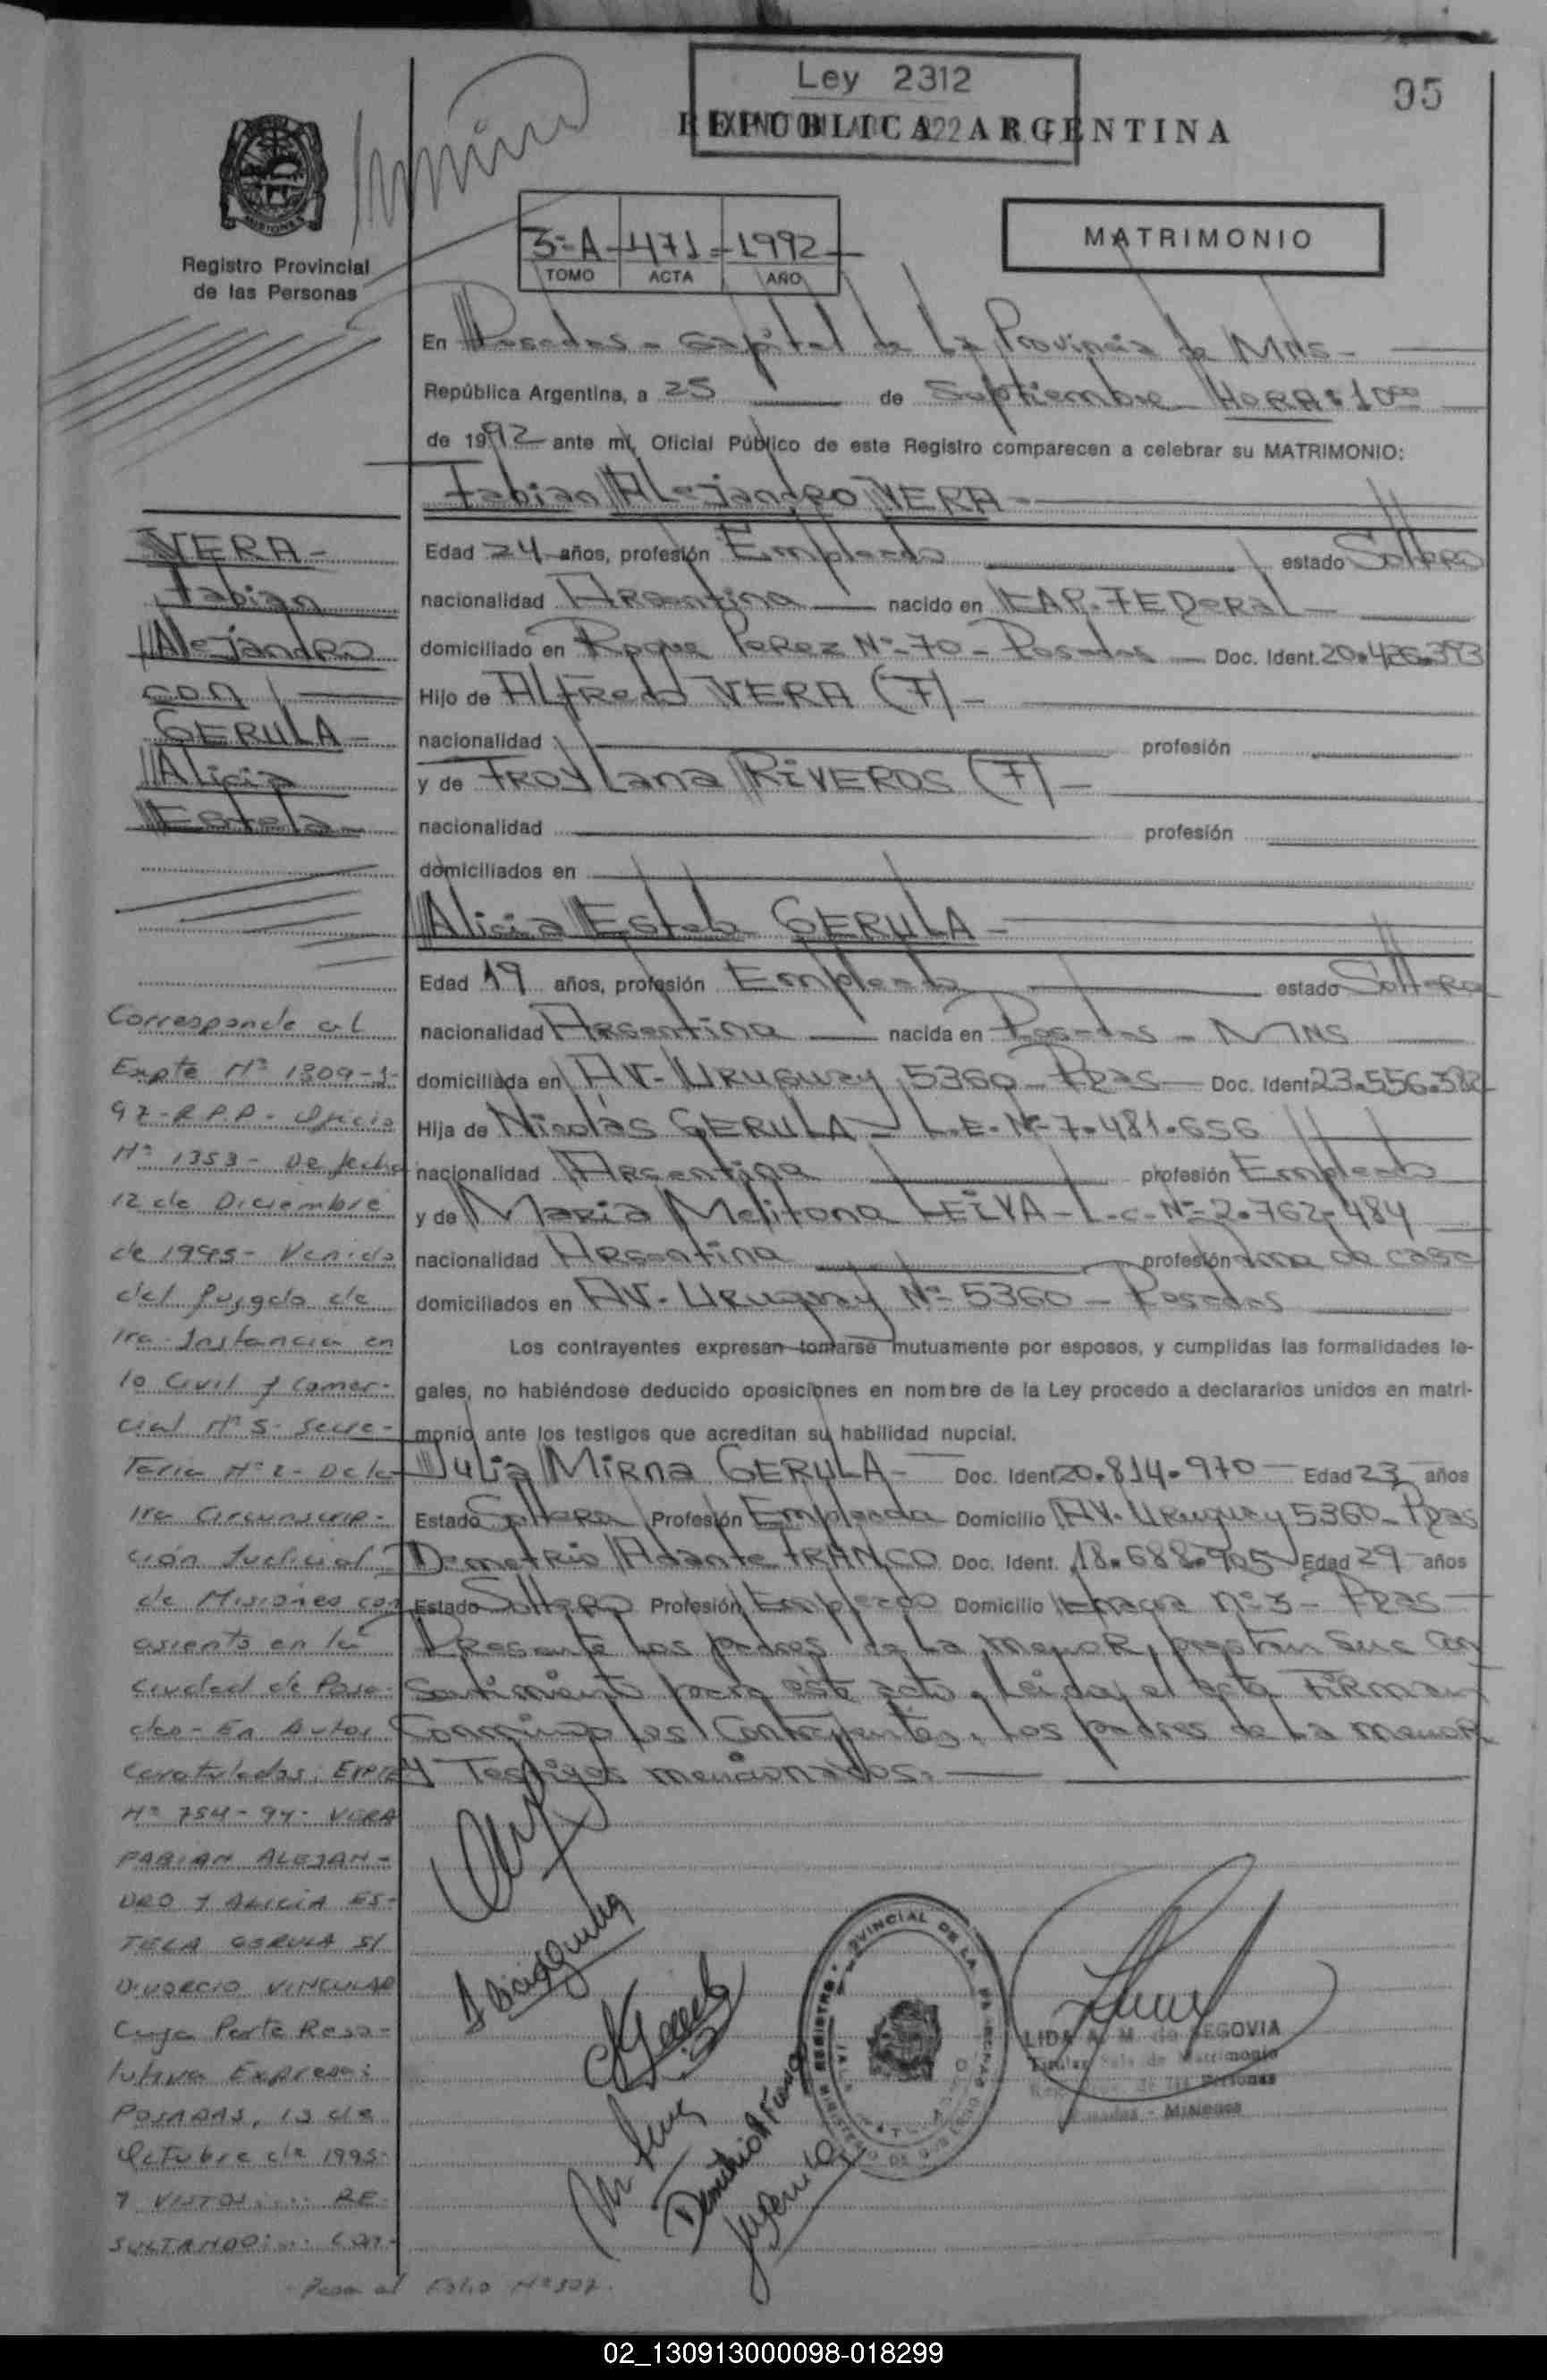 Ley 2312
95
REPUBLICA ARGENTINA
MISIONES
Registro Provincial
de las Personas
3º A - 471 - 1992
TOMO ACTA AÑO
MATRIMONIO
En Posadas - Capital de La Provincia de Mns -
República Argentina, a 25 de Septiembre HORA: 10⁰⁰
de 1992 ante mí, Oficial Público de este Registro comparecen a celebrar su MATRIMONIO:
Fabian Alejandro VERA -
Edad 24 años, profesión Empleado estado Soltero
nacionalidad Argentina nacido en CAP. FEDERAL
domiciliado en Roque Perez Nº 70 - Posadas Doc. Ident. 20.426.393
Hijo de Alfredo VERA (F) -
nacionalidad profesión
y de Froylana RIVEROS (F) -
nacionalidad profesión
domiciliados en
Alicia Estela GERULA -
Edad 19 años, profesión Empleada estado Soltera
nacionalidad Argentina nacida en Posadas - MNS
domiciliada en AV. Uruguay 5360 - Pdas Doc. Ident. 23.556.382
Hija de Nicolás GERULA - L.E. Nº 7.481.656
nacionalidad Argentina profesión Empleado
y de Maria Melitona LEIVA - L.C. Nº 2.762.484
nacionalidad Argentina profesión Ama de casa
domiciliados en AV. Uruguay Nº 5360 - Posadas
Los contrayentes expresan tomarse mutuamente por esposos, y cumplidas las formalidades le-
gales, no habiéndose deducido oposiciones en nombre de la Ley procedo a declararlos unidos en matri-
monio ante los testigos que acreditan su habilidad nupcial.
Julia Mirna GERULA - Doc. Ident. 20.814.970 Edad 23 años
Estado Soltera Profesión Empleada Domicilio AV. Uruguay 5360 - Pdas
Demetrio Adante FRANCO Doc. Ident. 18.688.905 Edad 29 años
Estado Soltero Profesión Empleado Domicilio Nº 3 - Pdas
Presente los padres de La menor, prestan sue con
sentimiento para este acto. Leida el acta Firman
conmigo los Contrayentes, los padres de La menor
y Testigos mencionados.
VERA -
Fabian
Alejandro
con
GERULA -
Alicia
Estela
Corresponde al
Expte Nº 1309-J-
97-R.P.P. Oficio
Nº 1353 - De fecha
12 de Diciembre
de 1995 - Venido
del Juzgado de
1ra Instancia en
lo Civil y Comer-
cial Nº 5 - Secre-
taria Nº 2 - De la
1ra Circunscrip-
ción Judicial
de Misiones con
asiento en la
ciudad de Posa-
das - En Autos
Caratulados: EXPTE
Nº 754-94- VERA
FABIAN ALEJAN-
DRO Y ALICIA ES-
TELA GERULA S/
DIVORCIO VINCULAR
Cuya Parte Reso-
lutiva Expresa:
POSADAS, 13 de
Octubre de 1995
Y VISTOS: ... RE
SULTANDO: ... CON-
Pasa al Folio Nº 307.
Demetrio A Franco
LIDA A. M. de SEGOVIA
Titular Sala de Matrimonio
de las Personas
Posadas - Misiones
02_130913000098-018299